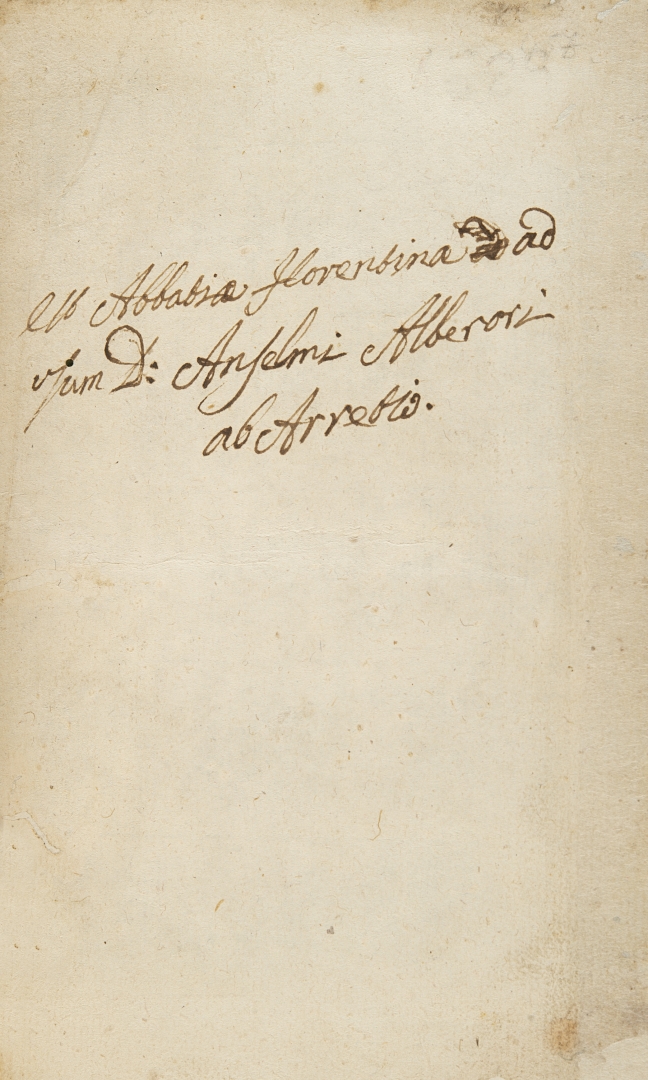 est Abbatiæ florentinæ ad
usum D: Anselmi Alberori
ab Arretio.